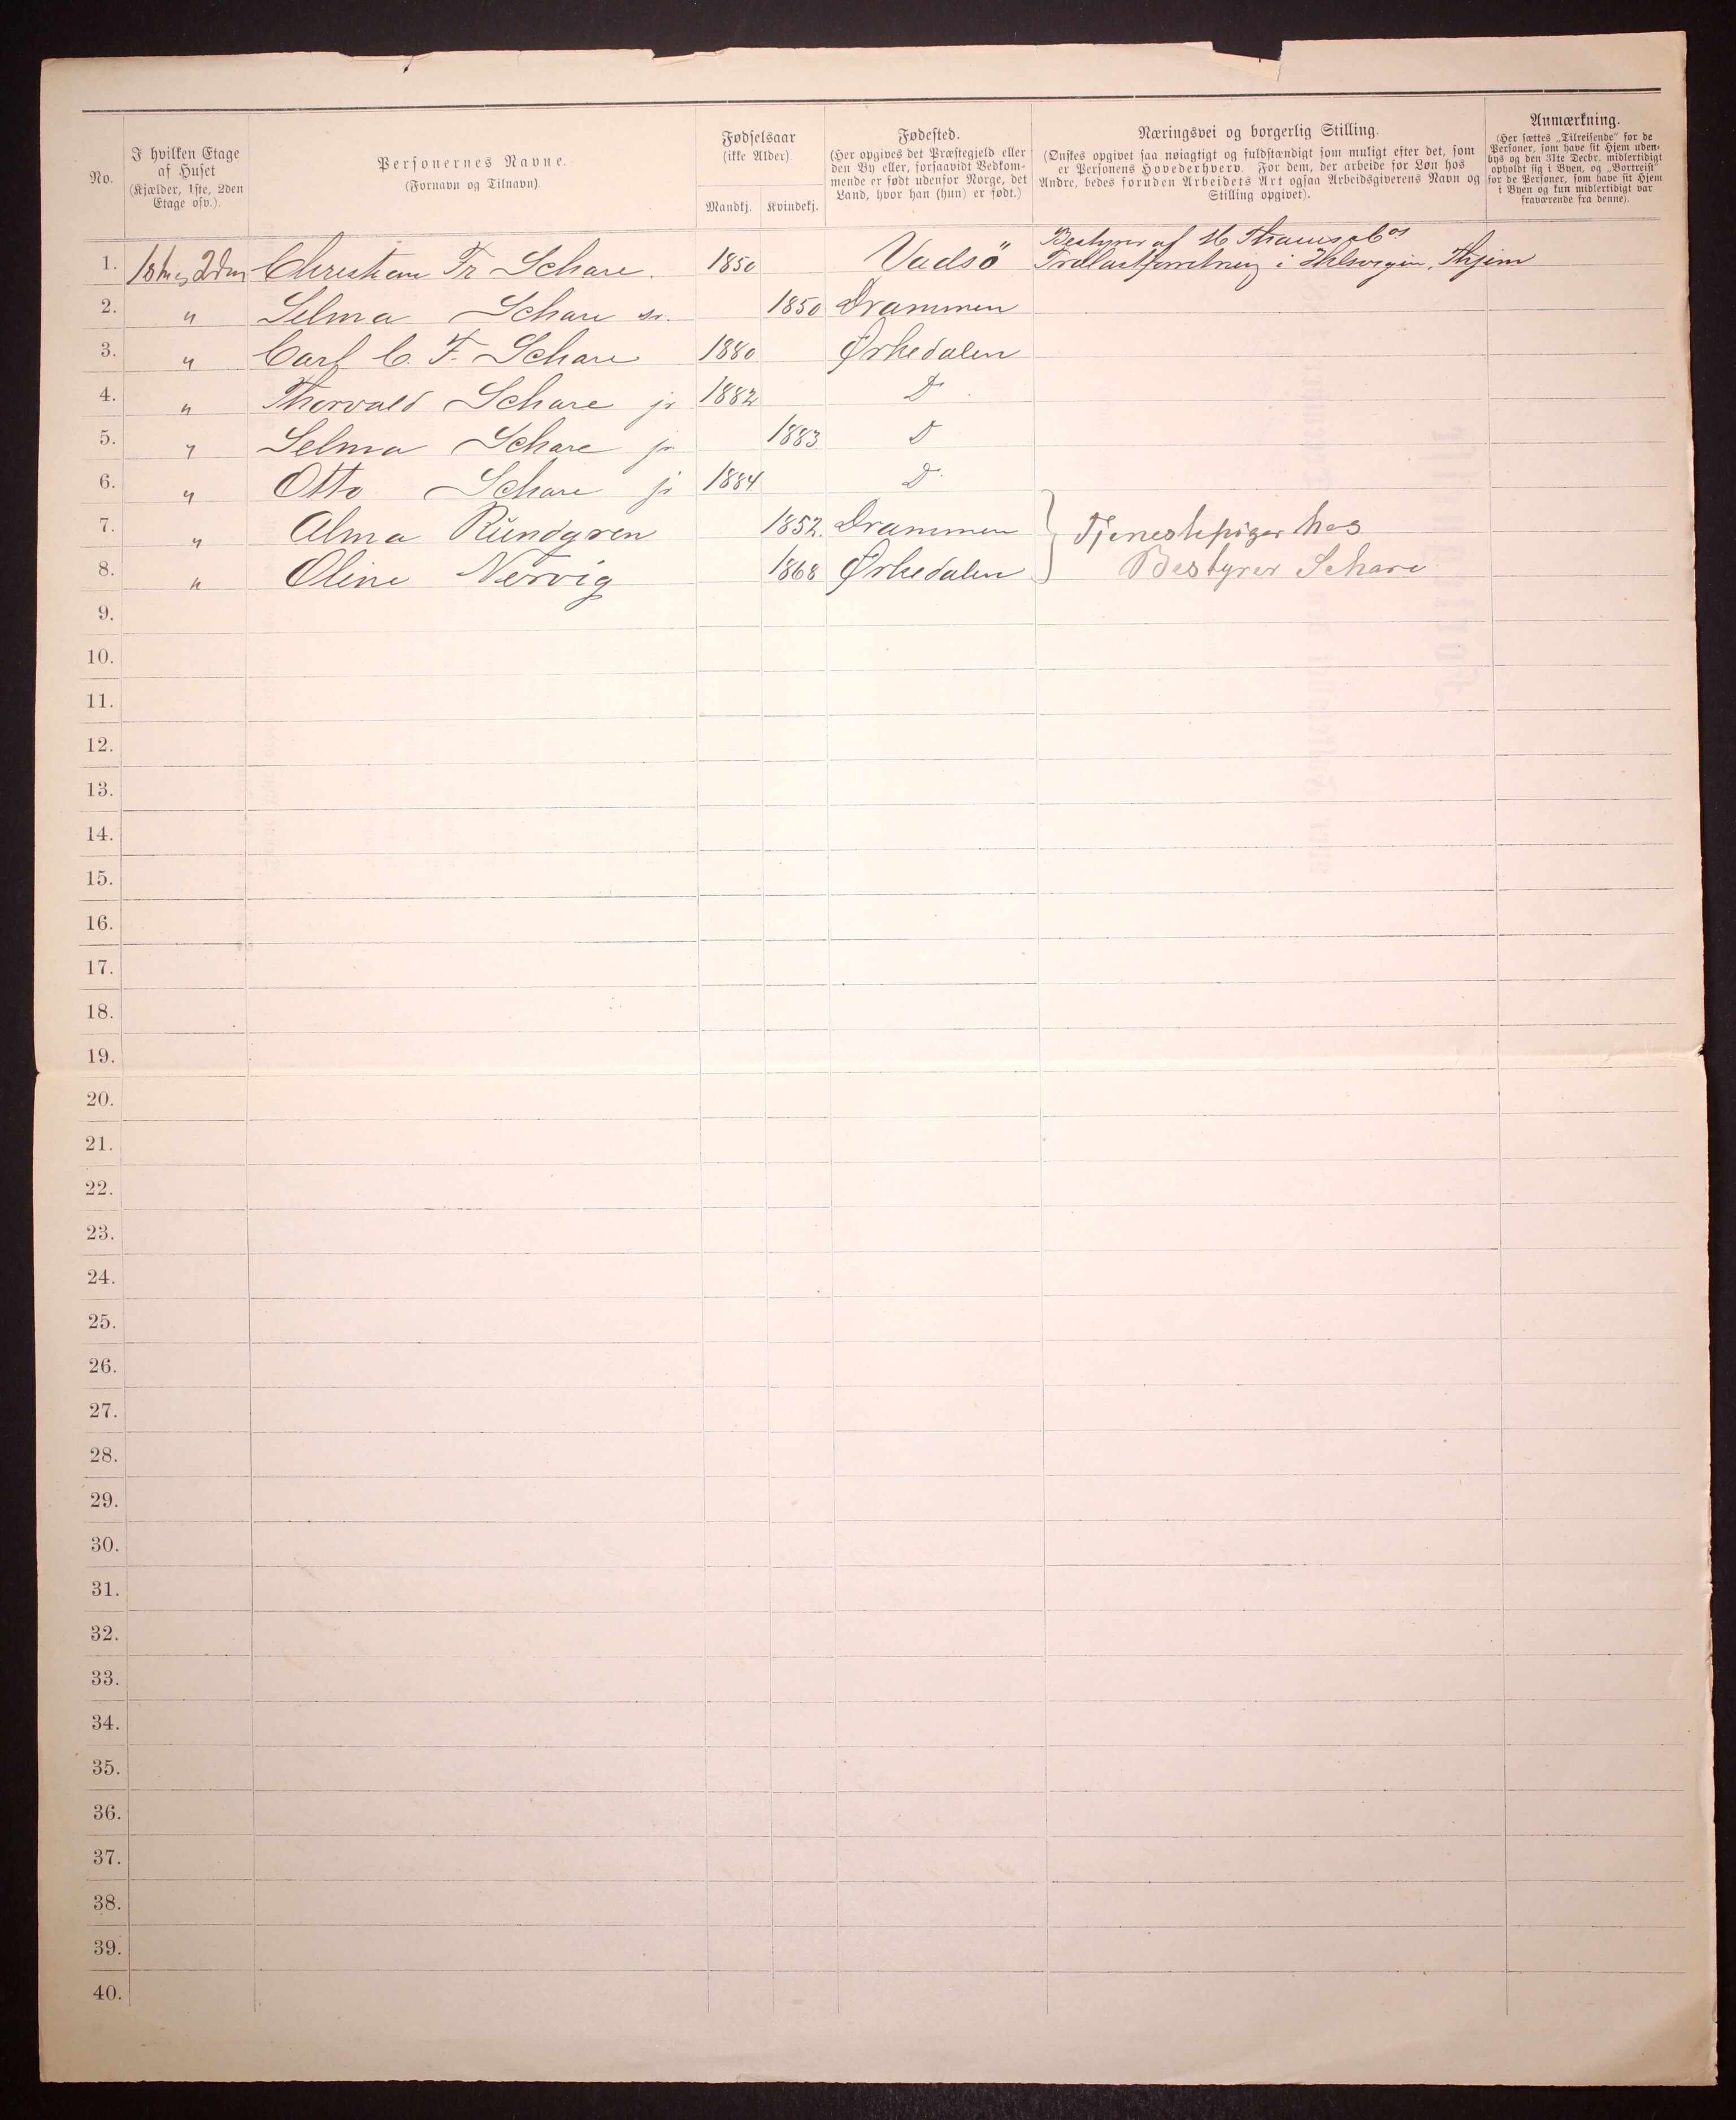 No.
I hvilken Etage
af Huset
(Kjælder, 1ste, 2den
Etage osv.).
Personernes Navne.
(Fornavn og Tilnavn).
Fødselsaar
(ikke Alder)
Mandkj. Kvindekj.
Fødested.
(Her opgives det Præstegjeld eller
den By eller, forsaavidt Vedkom-
mende er født udenfor Norge, det
Land, hvor han (hun) er født.)
Næringsvei og borgerlig Stilling.
(Ønskes opgivet saa nøiagtigt og fuldstændigt som muligt efter det, som
er Personens Hovederhverv. For dem, der arbeide for Løn hos
Andre, bedes foruden Arbeidets Art ogsaa Arbeidsgiverens Navn og
Stilling opgivet).
Anmærkning.
(Her sættes „Tilreisende" for de
Personer, som have sit Hjem uden-
bys og den 31te Decbr. midlertidigt
opholdt sig i Byen, og „Bortreist"
for de Personer, som have sit Hjem
i Byen og kun midlertidigt var
fraværende fra denne).
Bestyrer af M Thams & Cos
1. 1ste og 2den Christian Fr Schare. 1850 Vadsö Trælastforretning i Ihlsvigen, Thjem
2. " Selma Schare sr. 1850 Drammen
3. " Carl C. F. Schare 1880 Ørkedalen
4. " Thorvald Schare jr 1882 D
5. " Selma Schare jr 1883 D
6. " Otto Schare jr 1884 D
7. " Alma Rundgren 1852. Drammen } Tjenestepiger hos
8. " Oline Nervig 1868 Ørkedalen Bestyrer Schare
9.
10.
11.
12.
13.
14.
15.
16.
17.
18.
19.
20.
21.
22.
23.
24.
25.
26.
27.
28.
29.
30.
31.
32.
33.
34.
35.
36.
37.
38.
39.
40.